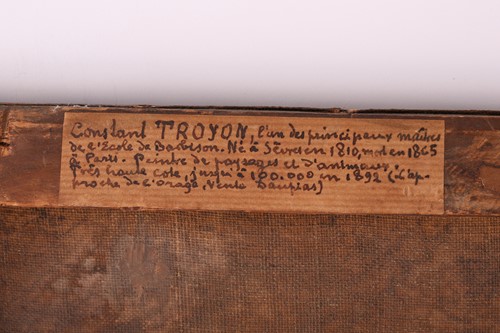 Constant TROYON, l'un des principaux maîtres
de l'Ecole de Barbison. Né à Sèvres en 1810, mort en 1865
à Paris. Peintre de paysages et d'animaux,
Très haute cote, jusqu'à 100.000 en 1892 (L'ap-
proche de l'orage, Vente Daupias)